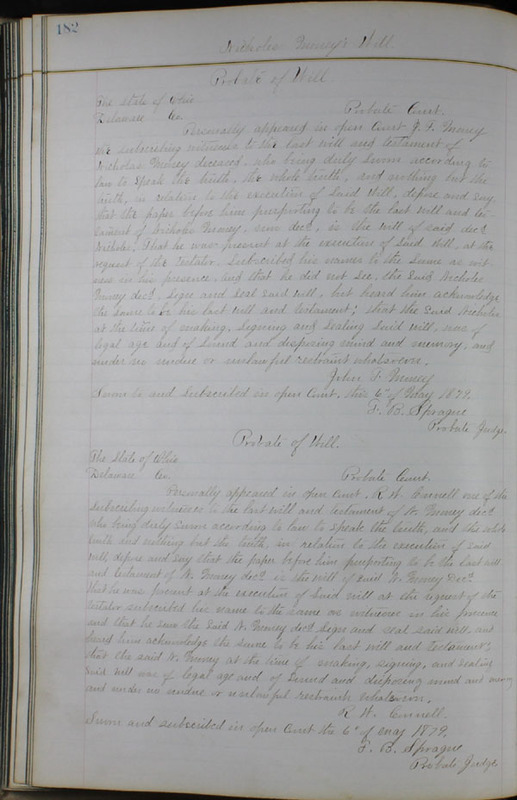 182
Nicholas Money's Will.
Probate of Will
The State of Ohio
Delaware Co. Probate Court.
Personally appeared in open Court J. F. Money
the subscribing witness to the last will and testament of
Nicholas Money deceased, who being duly sworn according to
law to speak the truth, the whole truth, and nothing but the
truth, in relation to the execution of said Will, depose and say,
that the paper before him purporting to be the last will and tes-
tament of Nicholas Money, now decd, is the will of said decd
Nicholas. That he was present at the execution of said Will, at the
request of the testator. Subscribed his name to the same as wit-
ness in his presence, and that he did not see the said Nicholas
Money decd, sign and seal said will, but heard him acknowledge
the same to be his last will and testament; that the said Nicholas
at the time of making, signing and sealing said will, was of
legal age and of sound and disposing mind and memory, and
under no undue or unlawful restraint whatsoever.
John F. Money
Sworn to and subscribed in open Court, this 6" of May 1879.
F. B. Sprague
Probate Judge.
Probate of Will.
The State of Ohio
Delaware Co. Probate Court.
Personally appeared in open Court, R. W. one of the
subscribing witnesses to the last will and testament of N. Money decd
who being duly sworn according to law to speak the truth, and the whole
truth and nothing but the truth, in relation to the execution of said
will, depose and say that the paper before him purporting to be the last will
and testament of N. Money decd is the will of said N. Money decd
that he was present at the execution of said will at the request of the
testator subscribed his name to the same as witness in his presence
and that he saw the said N. Money decd sign and seal said will, and
heard him acknowledge the same to be his last will and testament;
that the said N. Money at the time of making, signing, and sealing
said will was of legal age and of sound and disposing mind and memory
and under no undue or unlawful restraint whatsoever.
R. W.
Sworn and subscribed in open Court the 6" of May 1879.
F. B. Sprague
Probate Judge